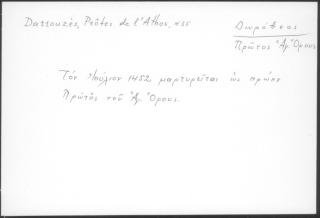 Darrouzès, Prôtes de l'Athos, 435
Δωρόθεος
Πρῶτος Ἁγ. Ὄρους
Τὸν Ἰούλιον 1452 μαρτυρεῖται ὡς πρώην
Πρῶτος τοῦ Ἁγ. Ὄρους.